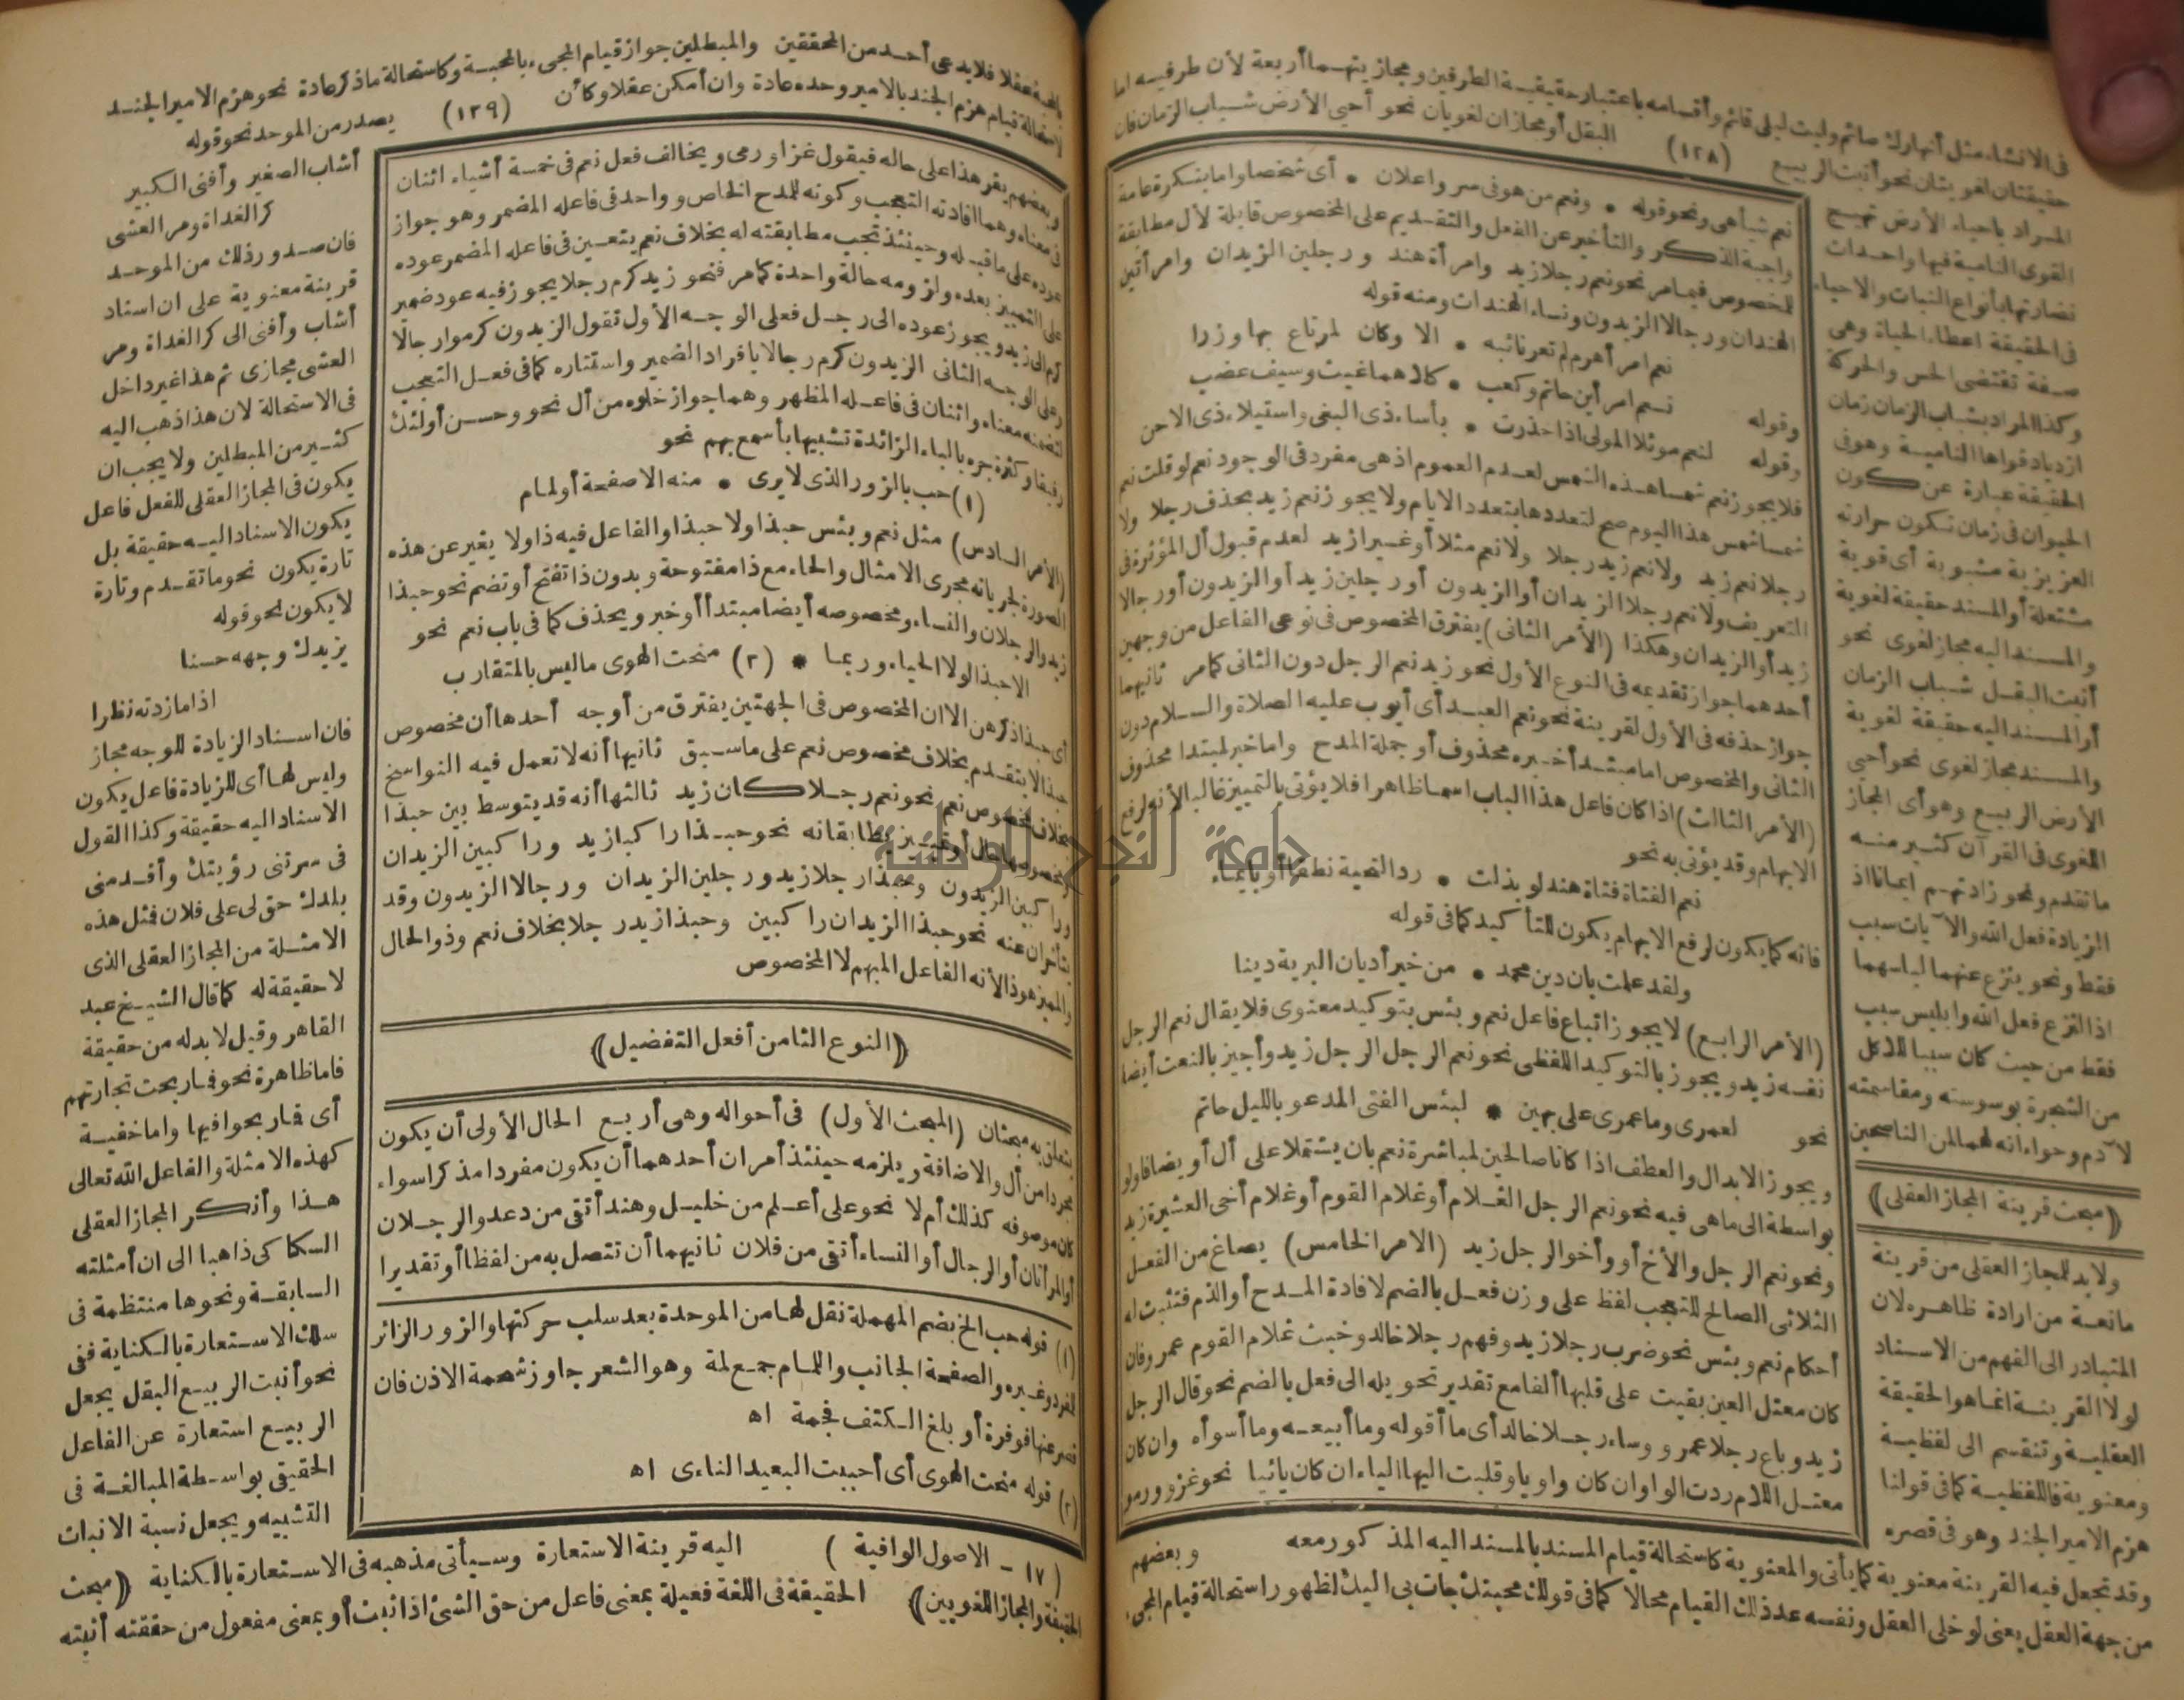 فى الانشاء مثل أنهارك صائم وليت ليلى قائم وأقسامه باعتبار حقيقيـة الطرفين ومجازيتهـما أربعة لأن طرفيـه اما
حقيقتان لغويتان نحو أنبت الربيع (١٢٨) البقل أو مجازان لغويان نحو أحيى الأرض شـباب الزمان فان
المراد باحياء الأرض تهييج
القوى النامية فيها واحداث
نضارتها بأنواع النبات والاحياء
فى الحقيقة اعطاء الحياة وهى
صـفة تقتضى الحس والحركة
وكذا المراد بشباب الزمان زمان
ازدياد قواها الناميـة وهو فى
الحقيقة عبارة عن كون
الحيوان فى زمان تكون حرارته
العزيزية مشبوبة أى قوية
مشتعلة أو المسند حقيقة لغوية
والمسـند اليه مجاز لغوى نحو
أنبت البقـل شـباب الزمان
أو المسـند اليه حقيقة لغوية
والمسـند مجاز لغوى نحو أحيى
الأرض الربيع وهو أى المجاز
اللغوى فى القرآن كثـير منـه
ما تقدم ونحو زادتهـم ايمانا اذ
الزيادة فعل الله والآيات سبب
فقط ونحو ينزع عنهما لباسهما
اذ النزع فعل الله وابليس سبب
فقط من حيث كان سببا للاكل
من الشجرة بوسوسته ومقاسمته
لآدم وحواء انه لهما لمن الناصحين
﴿مبحث قرينة المجاز العقلى﴾
ولا بد للمجاز العقلى من قرينة
مانعـة من ارادة ظاهـره لان
المتبادر الى الفهم من الاسـناد
لولا القرينـة انما هو الحقيقة
العقليـة وتنقسم الى لفظيـة
ومعنوية فاللفظيـة كما فى قولنا
هزم الامير الجند وهو فى قصره
نعم شيأ هى ونحو قوله * ونعم من هو فى سر واعلان * أى شخصا واما بنكرة عامة
واجبة الذكر والتأخير عن الفعل والتقـديم على المخصوص قابلة لأل مطابقة
للمخصوص فيما مر نحو نعم رجلا زيد وامرأة هند ورجلين الزيدان وامرأتين
الهندان ورجالا الزيدون ونساء الهندات ومنه قوله
نعم امرأ هرم لم تعر نائبه * الا وكان لمرتاع بها وزرا
وقوله نـعم امرأين حاتم وكعب * كلاهما غيث وسيف عضب
وقوله لنعم موئلا المولى اذا حذرت * بأساء ذى البغى واستيلاء ذى الاحن
فلا يجوز نعم شمسا هـذه الشمس لعـدم العموم اذ هى مفرد فى الوجود نعم لو قلت نعم
شمسا شمس هذا اليوم صح لتعددها بتعدد الايام ولا يجوز نعم زيد بحذف رجلا ولا
رجلا نعم زيد ولا نعم زيد رجلا ولا نعم مثلا أو غـيرا زيد لعدم قبول أل المؤثرة فى
التعريف ولا نعم رجلا الزيدان أو الزيدون أو رجلين زيد أو الزيدون أو رجالا
زيد أو الزيدان وهكذا (الأمر الثانى) يفترق المخصوص فى نوعى الفاعل من وجهين
أحدهما جواز تقديمه فى النوع الأول نحو زيد نعم الرجل دون الثانى كما مر ثانيهما
جواز حذفه فى الأول لقرينة نحو نعم العبـد أى أيوب عليه الصلاة والسـلام دون
الثانى والمخصوص اما مبتـدأ خـبره محذوف أو جملة المدح واما خبر لمبتدا محذوف
(الأمر الثالث) اذا كان فاعل هذا الباب اسما ظاهرا فلا يؤتى بالتمييز غالبا لأنه لرفع
الابهام وقد يؤتى به نحو
نعم الفتاة فتاة هند لو بذلت * رد التحية نطقا أو بايماء
فانه كما يكون لرفع الابهام يكون للتأكيد كما فى قوله
ولقد علمت بان دين محمد * من خير أديان البرية دينا
(الأمر الرابع) لا يجوز اتباع فاعل نعم وبئس بتوكيد معنوى فلا يقال نعم الرجل
نفسه زيد ويجوز بالتوكيد اللفظى نحو نعم الرجل الرجل زيد وأجيز بالنعت أيضا
نحو لعمرى وما عمرى على بهين * لبئس الفتى المدعو بالليل حاتم
ويجوز الابدال والعطف اذا كانا صالحين لمباشرة نعم بان يشتملا على أل أو يضافا ولو
بواسطة الى ما هى فيه نحو نعم الرجل الغـلام أو غلام القوم أو غلام أخى العشيرة زيد
ونحو نعم الرجل والأخ أو وأخو الرجل زيد (الامر الخامس) يصاغ من الفعـل
الثلاثى الصالح للتعجب لفظ على وزن فعـل بالضم لافادة المـدح أو الذم فتثبت له
أحكام نعم وبئس نحو ضرب رجلا زيد وفهم رجلا خالد وخبث غلام القوم عمرو فان
كان معتل العين بقيت على قلبها ألفا مع تقدير تحويله الى فعل بالضم نحو قال الرجل
زيد وباع رجلا عمرو وساء رجـلا خالد أى ما أقوله وما أبيعـه وما أسوأه وان كان
معتـل اللام ردت الواو ان كان واويا وقلبت اليها الياء ان كان يائيا نحو غزو ورمو
وقد تجعل فيه القرينة معنوية كما يأتى والمعنوية كاستحالة قيام المسند بالمسند اليه المذكور معه وبعضهم
من جهة العقل يعنى لو خلى العقل ونفسه عد ذلك القيام محالا كما فى قولك محبتك جاءت بى اليك لظهور استحالة قيام المجىء
بالمحبة عقلا فلا يدعى أحـد من المحققين والمبطلين جواز قيام المجىء بالمحبـة وكاستحالة ما ذكر عادة نحو هزم الامير الجنـد
لاستحالة قيام هزم الجند بالامير وحده عادة وان أمكن عقلا وكأن (١٢٩) يصدر من الموحد نحو قوله
أشاب الصغير وأفنى الكبير
كر الغداة ومر العشى
فان صـدور ذلك من الموحـد
قرينة معنوية على ان اسناد
أشاب وأفنى الى كر الغداة ومر
العشى مجازى ثم هذا غير داخل
فى الاستحالة لان هذا ذهب اليه
كثـير من المبطلين ولا يجب ان
يكون فى المجاز العقلى للفعل فاعل
يكون الاسناد اليـه حقيقة بل
تارة يكون نحو ما تقـدم وتارة
لا يكون نحو قوله
يزيدك وجهه حسنا
اذا ما زدته نظرا
فان اسـناد الزيادة للوجه مجاز
وليس لها أى للزيادة فاعل يكون
الاسناد اليه حقيقة وكذا القول
فى سرتنى رؤيتك وأقـدمنى
بلدك حق لى على فلان فمثل هذه
الامثـلة من المجاز العقلى الذى
لا حقيقة له كما قال الشيـخ عبد
القاهر وقيل لا بد له من حقيقة
فاما ظاهرة نحو فما ربحت تجارتهم
أى فما ربحوا فيها واما خفيـة
كهذه الامثلة والفاعل الله تعالى
هـذا وأنكر المجاز العقلى
السكاكى ذاهبا الى ان أمثلته
السابقـة ونحوها منتظمة فى
سلك الاسـتعارة بالكناية ففى
نحو أنبت الربيـع البقل يجعل
الربيـع استعارة عن الفاعل
الحقيقى بواسـطة المبالغـة فى
التشبيه ويجعل نسبة الانبات
وبعضهم يقر هذا على حاله فيقول غزا ورمى ويخالف فعل نعم فى خمسة أشياء اثنان
فى معناه وهما افادته التعجب وكونه للمدح الخاص وواحد فى فاعله المضمر وهو جواز
عوده على ما قبـله وحينئذ تجب مطابقته له بخلاف نعم يتعـين فى فاعله المضمر عوده
على التمييز بعده ولزومه حالة واحدة كما مر فنحو زيد كرم رجلا يجوز فيه عود ضمير
كرم الى زيد ويجوز عوده الى رجـل فعلى الوجـه الأول تقول الزيدون كرموا رجالا
وعلى الوجـه الثانى الزيدون كرم رجالا بافراد الضمير واستتاره كما فى فعـل التعجب
لتضمنه معناه واثنان فى فاعـله المظهر وهما جواز خلوه من أل نحو وحسـن أولئك
رفيقا وكثرة جره بالباء الزائدة تشبيها بأسمع بهم نحو
(١) حب بالزور الذى لا يرى * منه الا صفحة أو لمام
(الأمر السادس) مثل نعم وبئس حبذا ولا حبذا والفاعل فيه ذا ولا يغير عن هذه
الصورة لجريانه مجرى الامثال والحاء مع ذا مفتوحة وبدون ذا تفتح أو تضم نحو حبذا
زيد والرجلان والنساء ومخصوصه أيضا مبتدأ أو خبر ويحذف كما فى باب نعم نحو
الا حبذا لولا الحياء وربما * (٢) منحت الهوى ما ليس بالمتقارب
أى حبذا ذكر هن الا ان المخصوص فى الجهتين يفترق من أوجه أحدها أن مخصوص
حبذا لا يتقـدم بخلاف مخصوص نعم على ما سـبق ثانيها أنه لا تعمل فيه النواسخ
بخلاف مخصوص نعم نحو نعم رجـلا كان زيد ثالثها أنه قد يتوسط بين حبذا
ومخصوصها حال أو تمييز يطابقانه نحو حبـذا راكبا زيد وراكبين الزيدان
وراكبين الزيدون وحبذا رجلا زيد ورجلين الزيدان ورجالا الزيدون وقد
يتأخران عنه نحو حبذا الزيدان راكبين وحبذا زيد رجلا بخلاف نعم وذو الحال
والمميز هو ذا لأنه الفاعل المبهم لا المخصوص
﴿النوع الثامن أفعل التفضيل﴾
يتعلق به مبحثان (المبحث الأول) فى أحواله وهى أربـع الحال الأولى أن يكون
مجردا من أل والاضافة ويلزمه حينئذ أمران أحدهما أن يكون مفردا مذكرا سواء
كان موصوفه كذلك أم لا نحو على أعـلم من خليـل وهند أتقى من دعد والرجـلان
أو المرأتان أو الرجال أو النساء أتقى من فلان ثانيهما أن تتصل به من لفظا أو تقديرا
(١) قوله حب الخ بضم المهملة نقل لها من الموحدة بعد سلب حركتها والزور الزائر
للفرد وغـيره والصفحة الجانب واللمام جمـع لمة وهو الشعر جاوز شحمة الاذن فان
قصر عنها فوفرة أو بلغ الكتف فجمة اه
(٢) قوله منحت الهوى أى أحببت البعيد النائى اه
(١٧ - الاصول الوافية ) اليه قرينة الاستعارة وسـيأتى مذهبه فى الاسـتعارة بالكناية ﴿مبحث
الحقيقة والمجاز اللغويين﴾ الحقيقة فى اللغة فعيلة بمعنى فاعل من حق الشئ اذا ثبت أو بمعنى مفعول من حققته أثبته
جامعة النجاح الوطنية